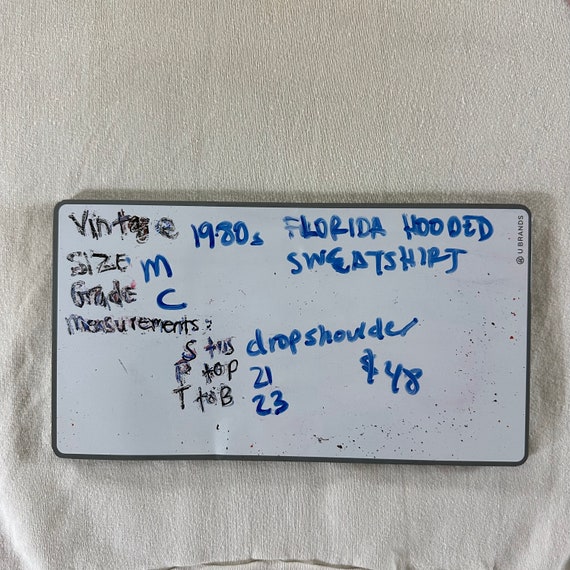 Vintage 1980s FLORIDA HOODED
SWEATSHIRT
SIZE M
Grade C
measurements:
S to S dropshoulder
P to P 21 $48
T to B 23
U BRANDS